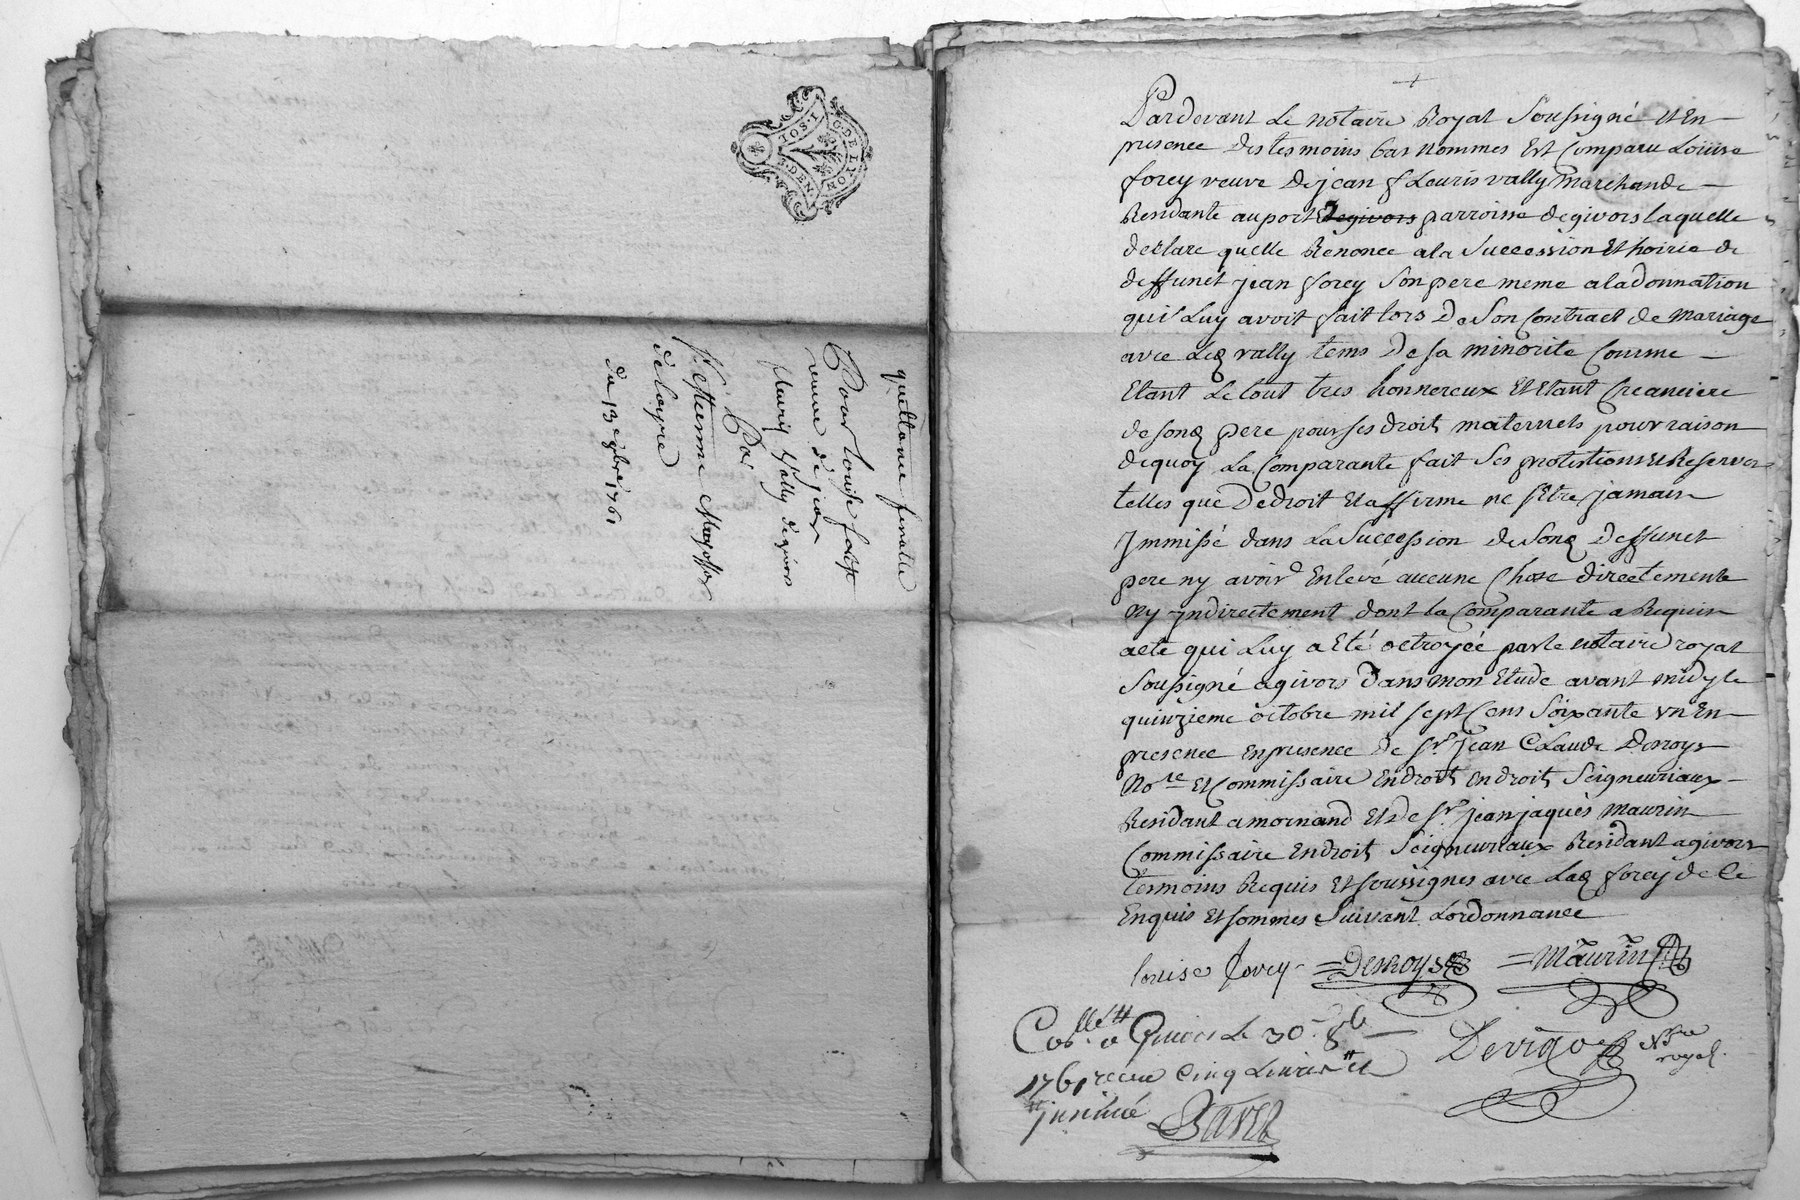 G. DE LYON
2 SOLS
8. DEN
quittance finalle
Pour Louise forest
veuve de jean
fleury Vally de givors
Par
Sr. Estienne
de loyre
du 13e 9bre 1761
+
Pardevant Le notaire Royal Soussigné Et En
presence des tesmoins bas nommes Est Comparu Loüise
forey veuve de jean fleuris vally Marchande
Residante au port de givors parroisse de givors laquelle
declare quelle Renonce a la Succession Et hoirie de
deffunct jean forey Son pere meme a la donnation
qu'il Luy avoit fait lors de Son Contract de Mariage
avec Led vally tems de sa minorite Comme
Etant Le tout tres honnereux Et Etant Creanciere
de sond pere pour ses droit maternels pour raison
de quoy La Comparante fait Ses protestions Et Reserves
telles que De droit Et affirme ne sEtre jamais
Jmmissé dans La Succession de Sond Deffunct
pere ny avoir Enlevé aucune Chose directemente
ny jndirectement dont la Comparante a Requis
acte qui Luy a Eté octroyéé par le notaire royal
Soussigné a givors Dans mon Etude avant midy le
quinzieme octobre mil sept Cens Soixante un En
presence En presence de Sr. Jean Claude Desroys
No.re Et Commissaire En droit En droit Seigneuriaux
Residant a mornand Et de Sr. jean jaques Maurin
Commissaire En droit Seigneuriaux Residant a givors
tesmoins Requis Et soussignes avec Lad forey de Ce
Enquis Et sommes Suivant Lordonnance
louise forey = Desroys = Maurin
Coll.é a Givors Le 30 8b
1761 recu Cinq Livres Et
jnsinué
Devigo Nre
royal